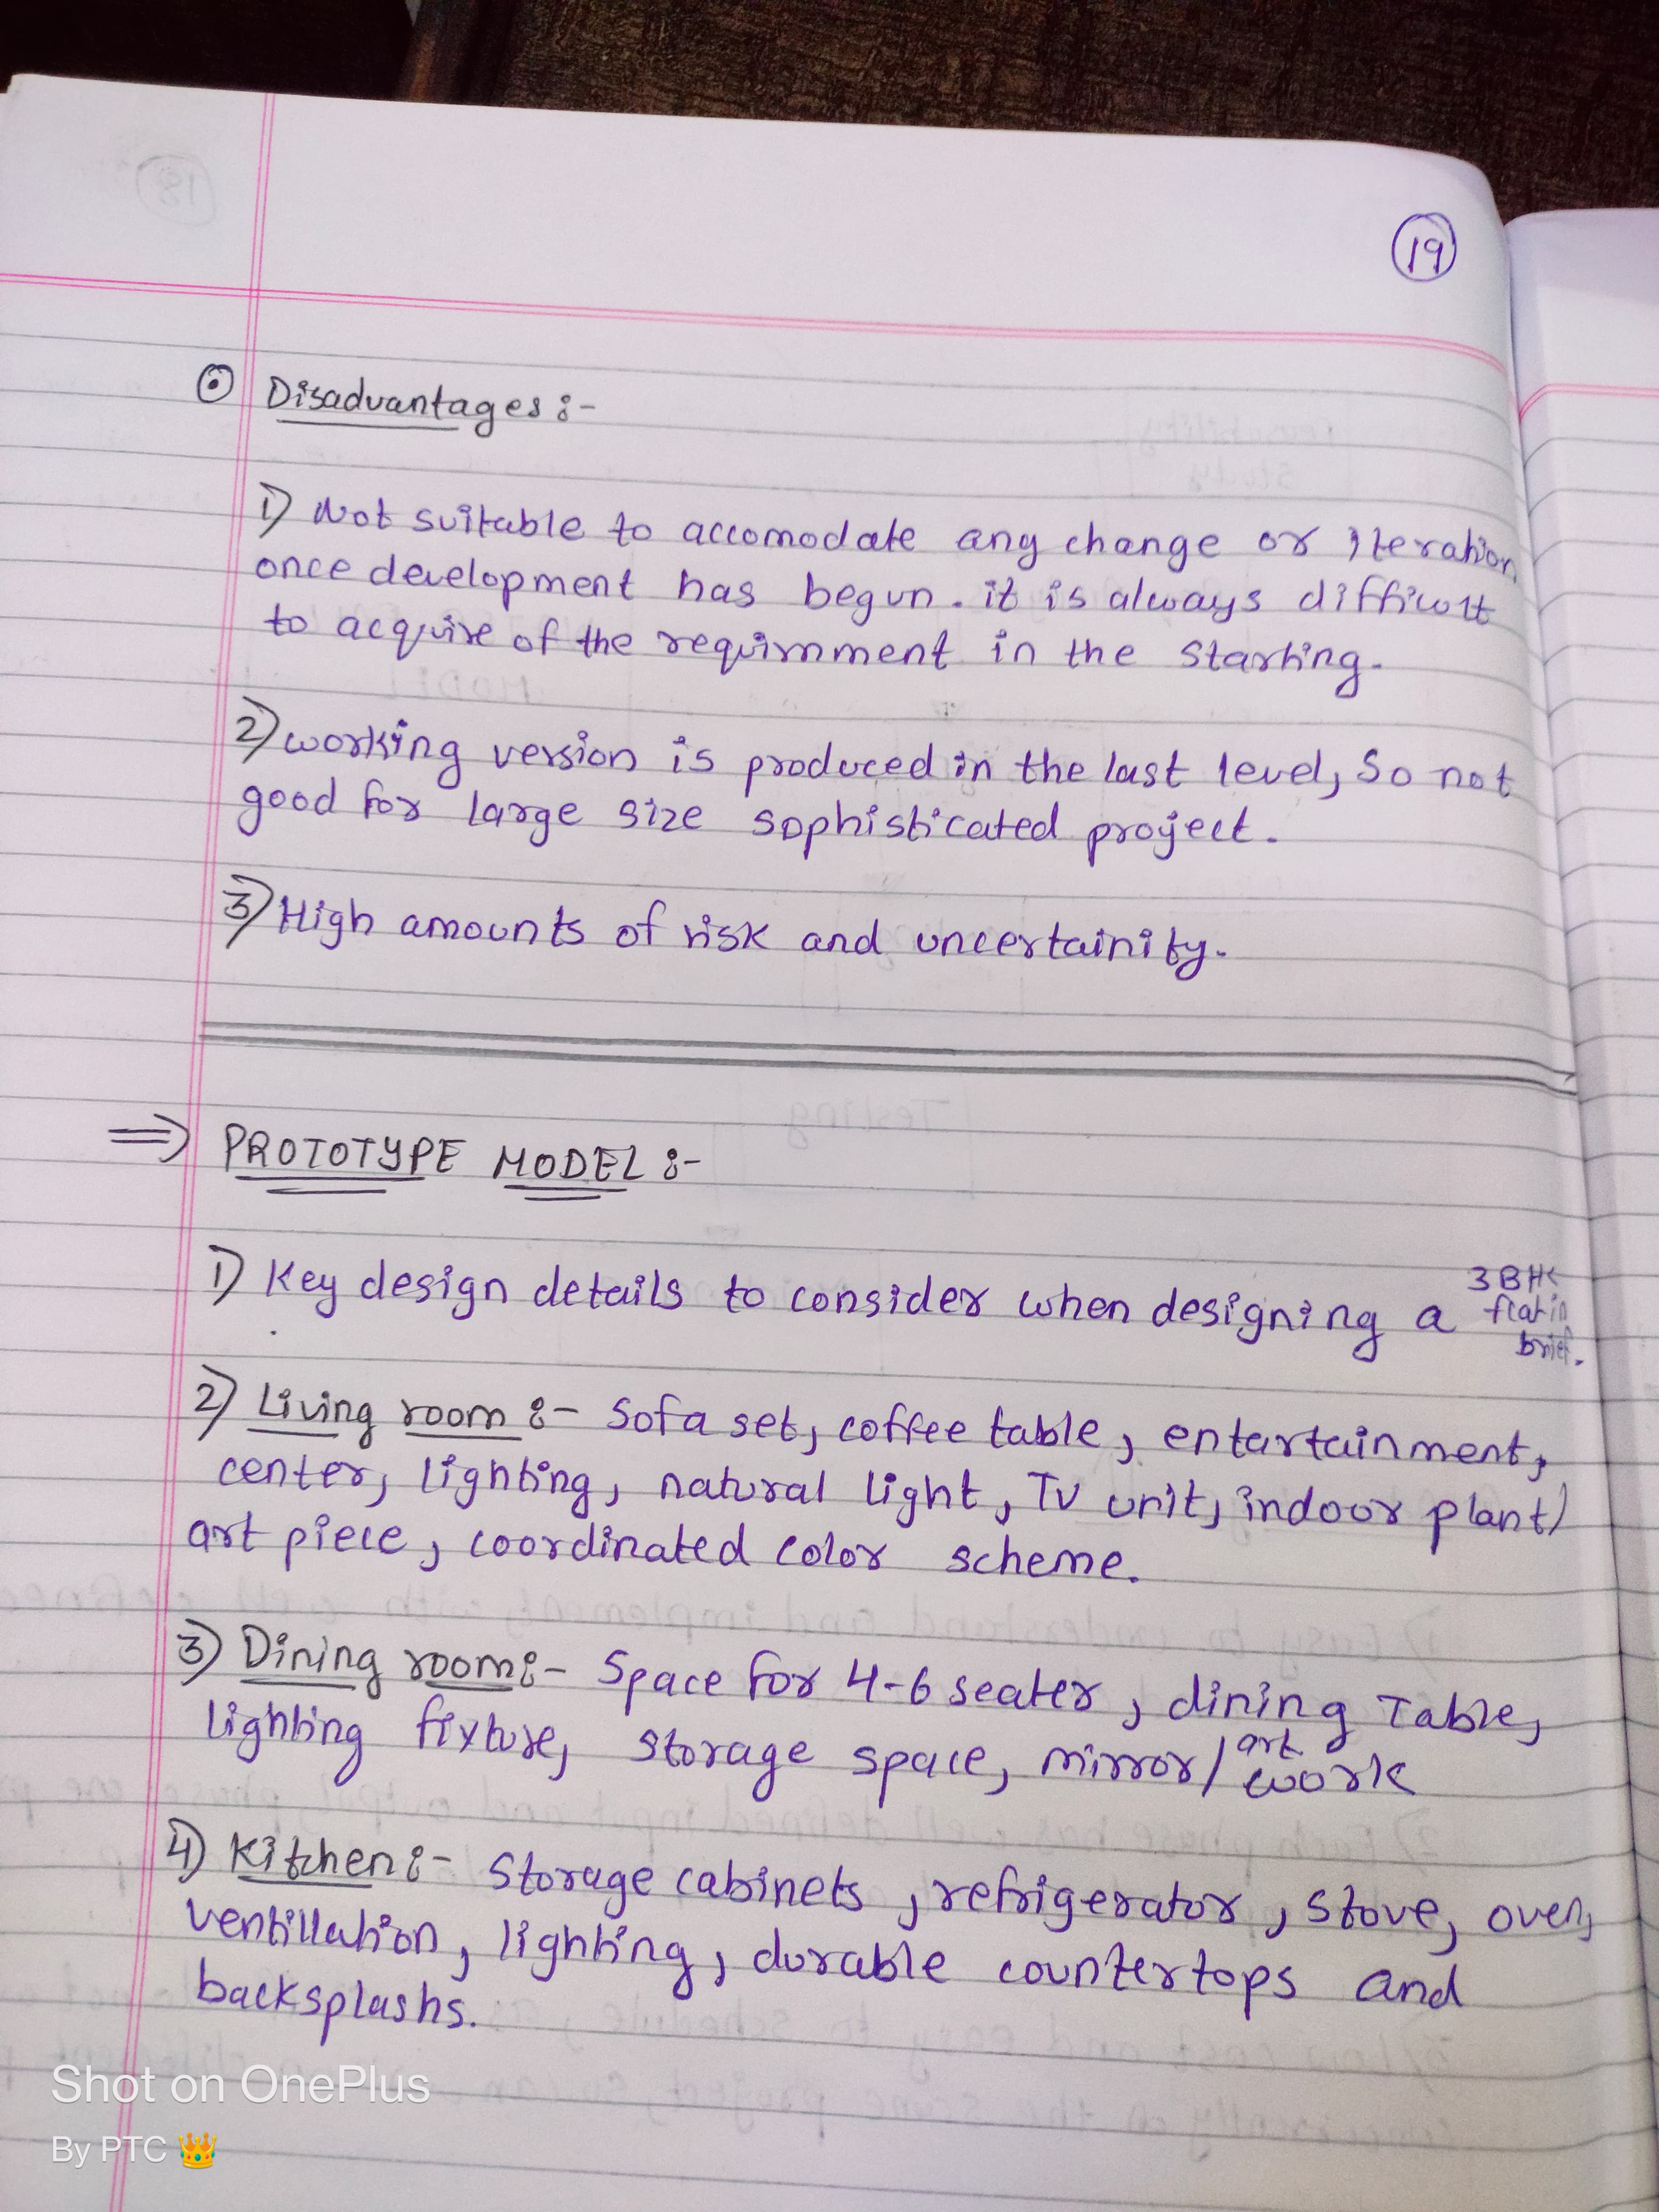 19
Disadvantages :-
1) Not suitable to accomodate any change or iteration
once development has begun. it is always difficult
to acquire of the requirnment in the starting.
2) working version is produced in the last level, So not
good for large size sophisticated project.
3) High amounts of risk and uncertainity.
⇒ PROTOTYPE MODEL :-
1) Key design details to consider when designing a 3 BHK flat in brief.
2) Living room :- Sofa set, coffee table, entertainment,
center, lighting, natural light, TV unit, indoor plant/
art piece, coordinated color scheme.
3) Dining room :- Space for 4-6 seater, dining Table,
lighting fixture, storage space, mirror/art work
4) Kitchen :- Storage cabinets, refrigerator, stove, oven,
ventillation, lighting, durable countertops and
backsplashs.
Shot on OnePlus
By PTC 👑